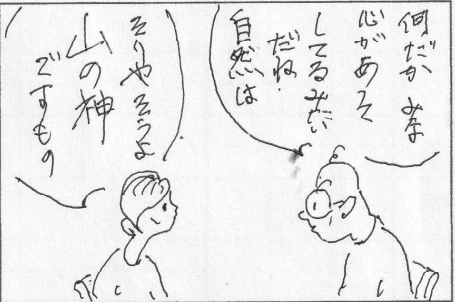 何だかみな
心があそ
してるみたい
だね
自然は
そりゃそうよ
山の神
ですもの